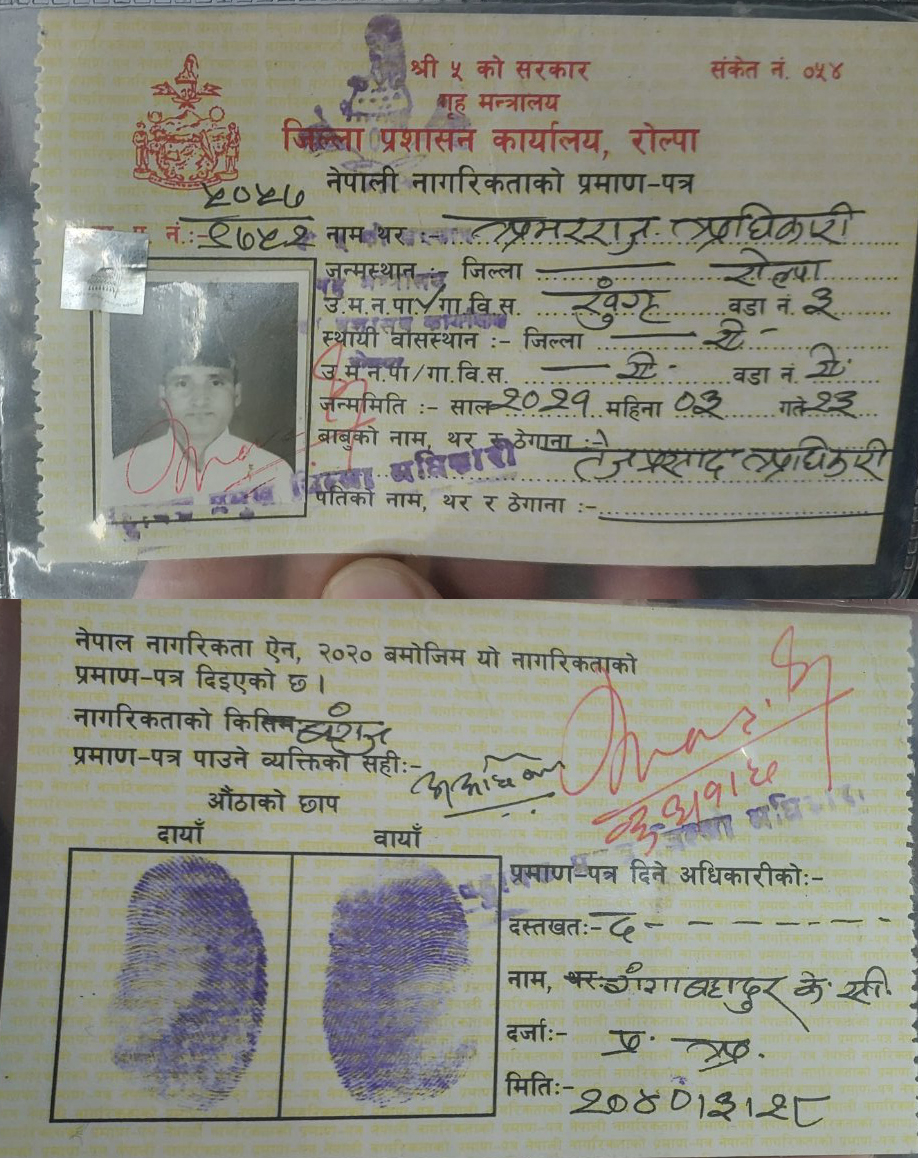 श्री ५ को सरकार
संकेत नं. ०५४
गृह मन्त्रालय
जिल्ला प्रशासन कार्यालय, रोल्पा
नेपाली नागरिकताको प्रमाण-पत्र
५०५७
प. नं.:-
नाम थर :- अमरराज अधिकारी
जन्मस्थान :- जिल्ला रोल्पा
उ.म.न.पा/गा.वि.स. खुंग्रु वडा नं. ३
स्थायी वासस्थान :- जिल्ला ऐ
उ.म.न.पा/गा.वि.स. ऐ वडा नं. ऐ
जन्ममिति :- साल २०२१ महिना ०३ गते २३
बाबुको नाम, थर र ठेगाना :-
प्रसाद अधिकारी
प्रमुख जिल्ला अधिकारी
पतिको नाम, थर र ठेगाना :-
नेपाल नागरिकता ऐन, २०२० बमोजिम यो नागरिकताको
प्रमाण-पत्र दिइएको छ ।
नागरिकताको किसिम:- बंशज
प्रमाण-पत्र पाउने व्यक्तिको सही:-
औंठाको छाप
दायाँ वायाँ
प्रमाण-पत्र दिने अधिकारीको:-
दस्तखत:- द -
नाम, थर:- गंगाबहादुर के.सी.
दर्जा:- प्र. जि.अ.
मिति:- २०४०।३।२८